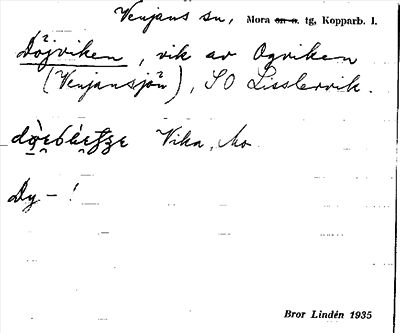 Venjans sn, Mora sn o. tg, Kopparb. l.
Döjviken, vik av Ogviken
(Venjanssjön), SO Lisslervik.
Vika, Mo
Dy – !
Bror Lindén 1935